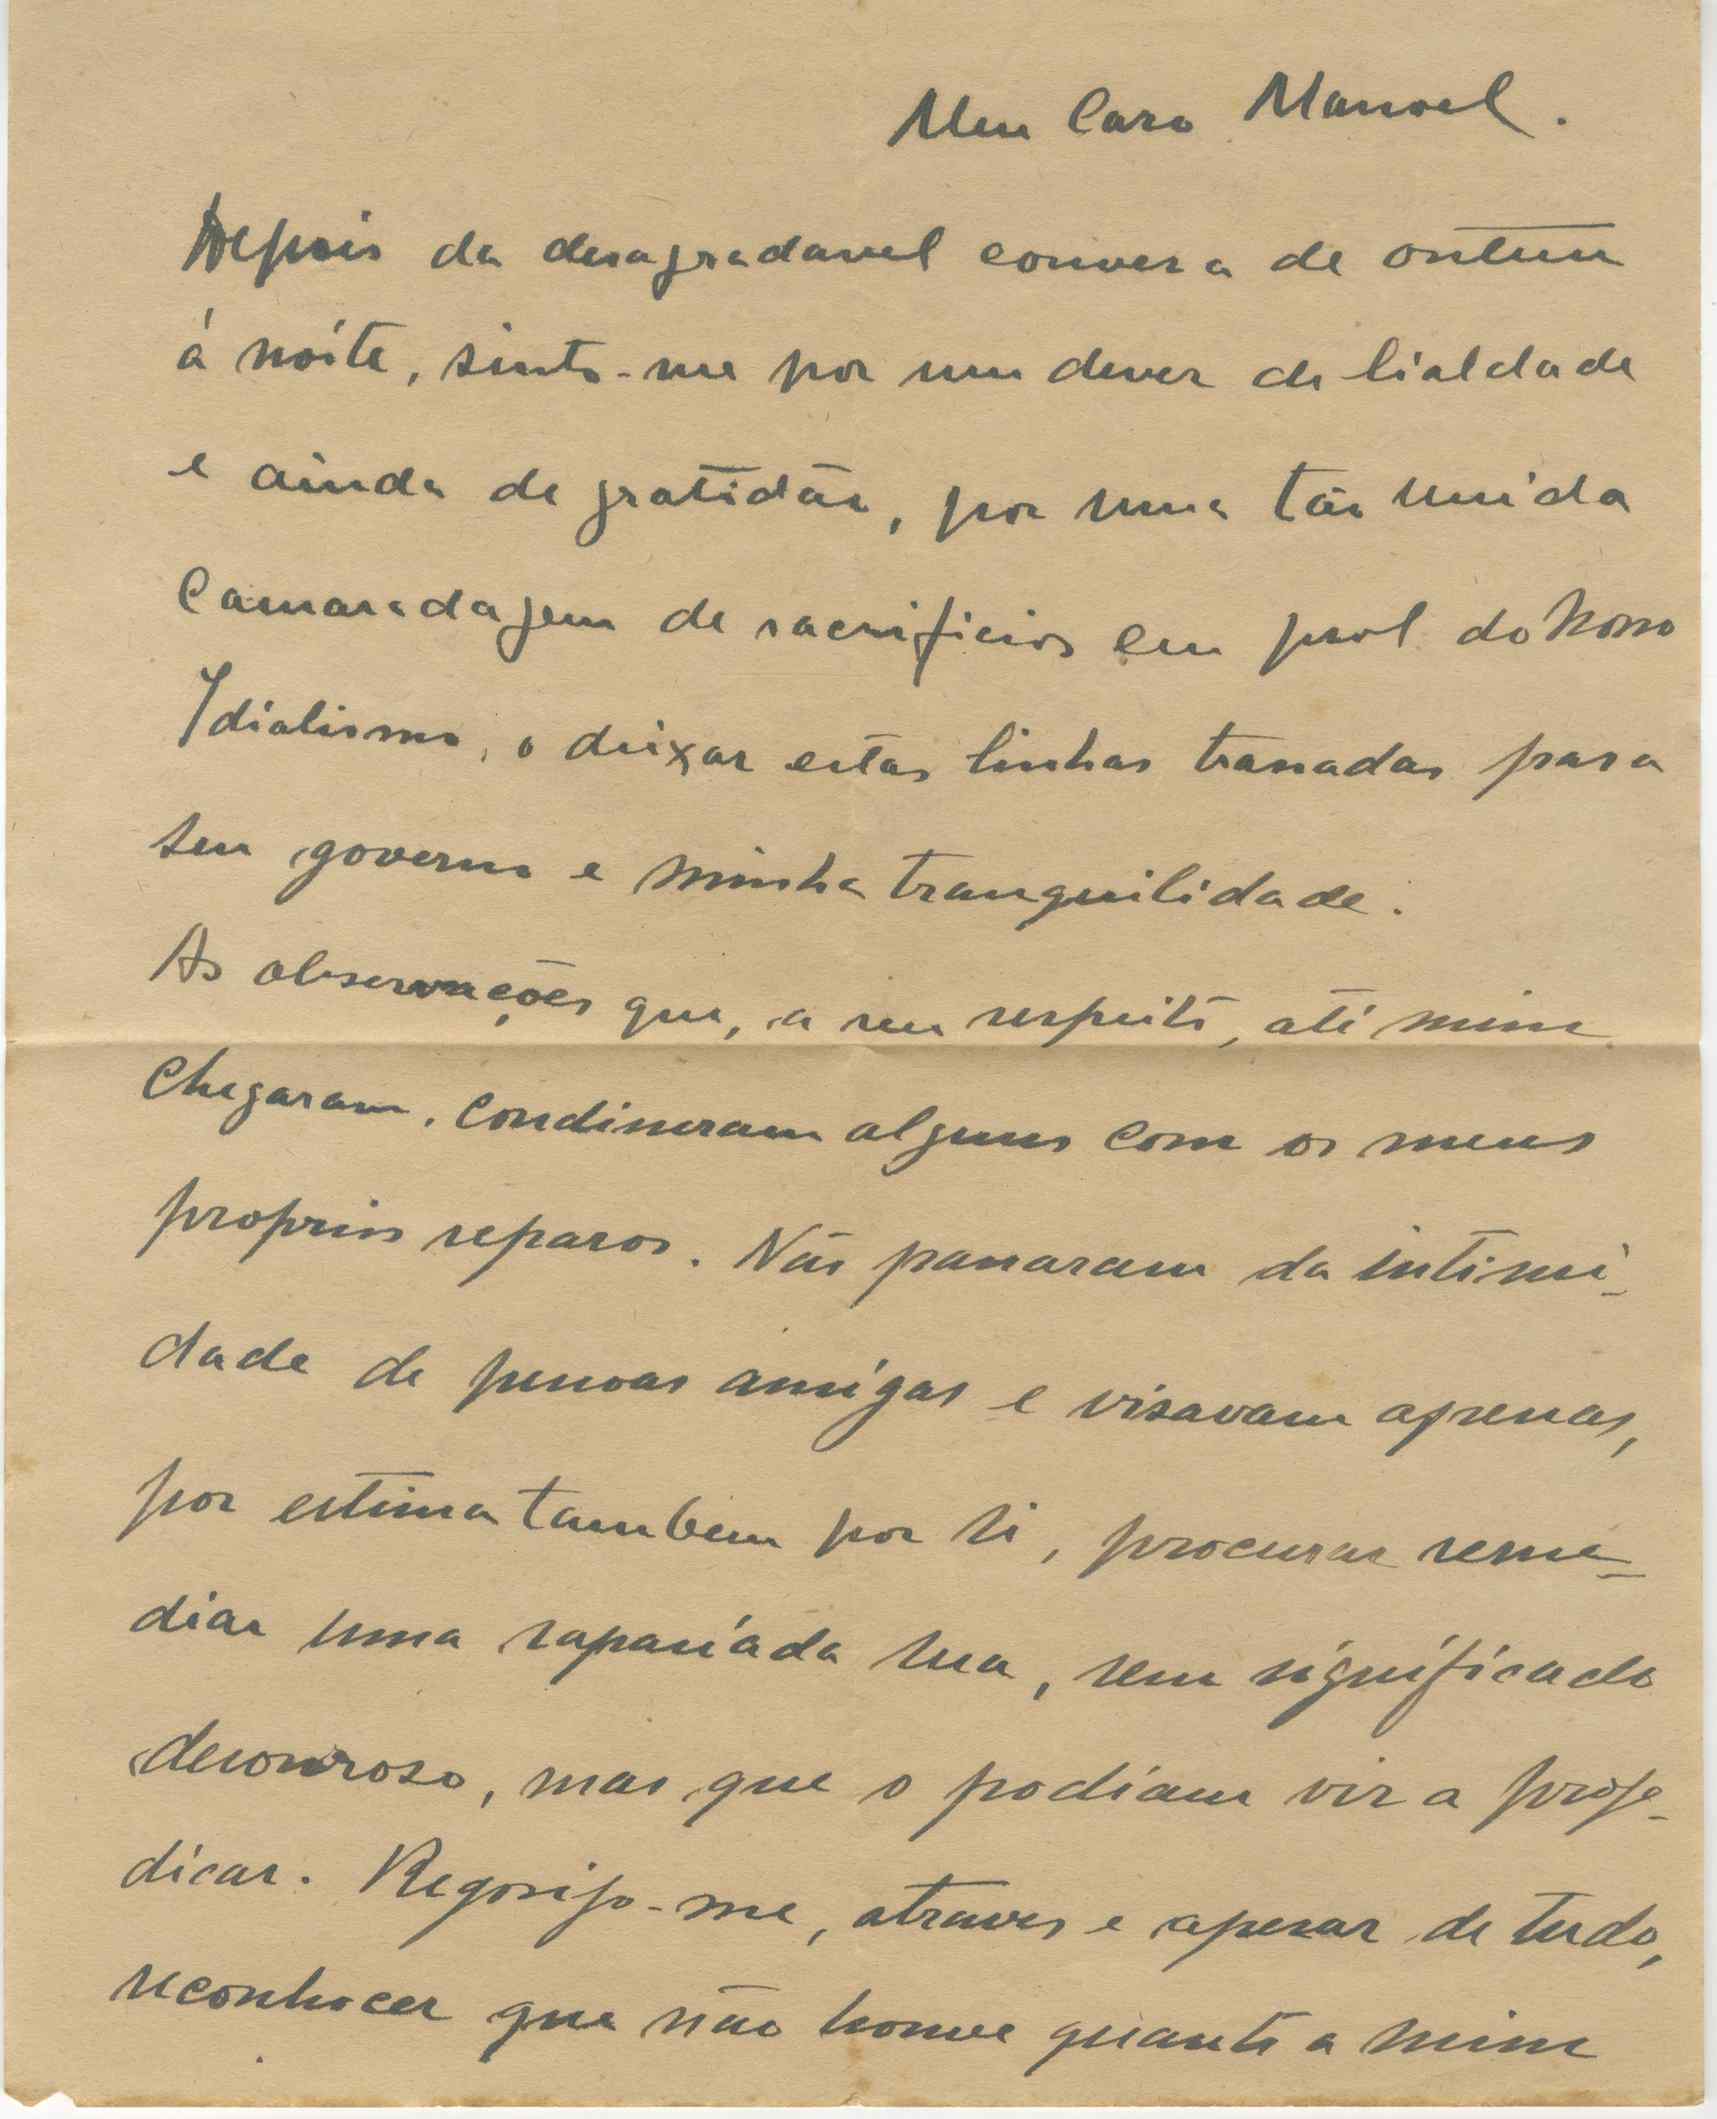 Meu Caro Manoel.
Depois da desagradavel conversa de ontem
á noite, sinto-me por um dever de lialdade
e ainda de gratidão, por uma tão unida
Camaradagem de sacrificios em prol do Nosso
Idialismo, o deixar estas linhas trassadas para
seu governo e minha tranquilidade.
As observações que, a seu respeito, até mim
chegaram, condiseram alguns com os meus
proprios reparos. Não passaram da intimi-
dade de pessoas amigas e visavam apenas,
por estima tambem por si, procurar reme-
diar uma rapasiada sua, sem significado
desonroso, mas que o podiam vir a preju-
dicar. Regosijo-me, atraves e apesar de tudo,
reconhecer que não houve quanto a mim